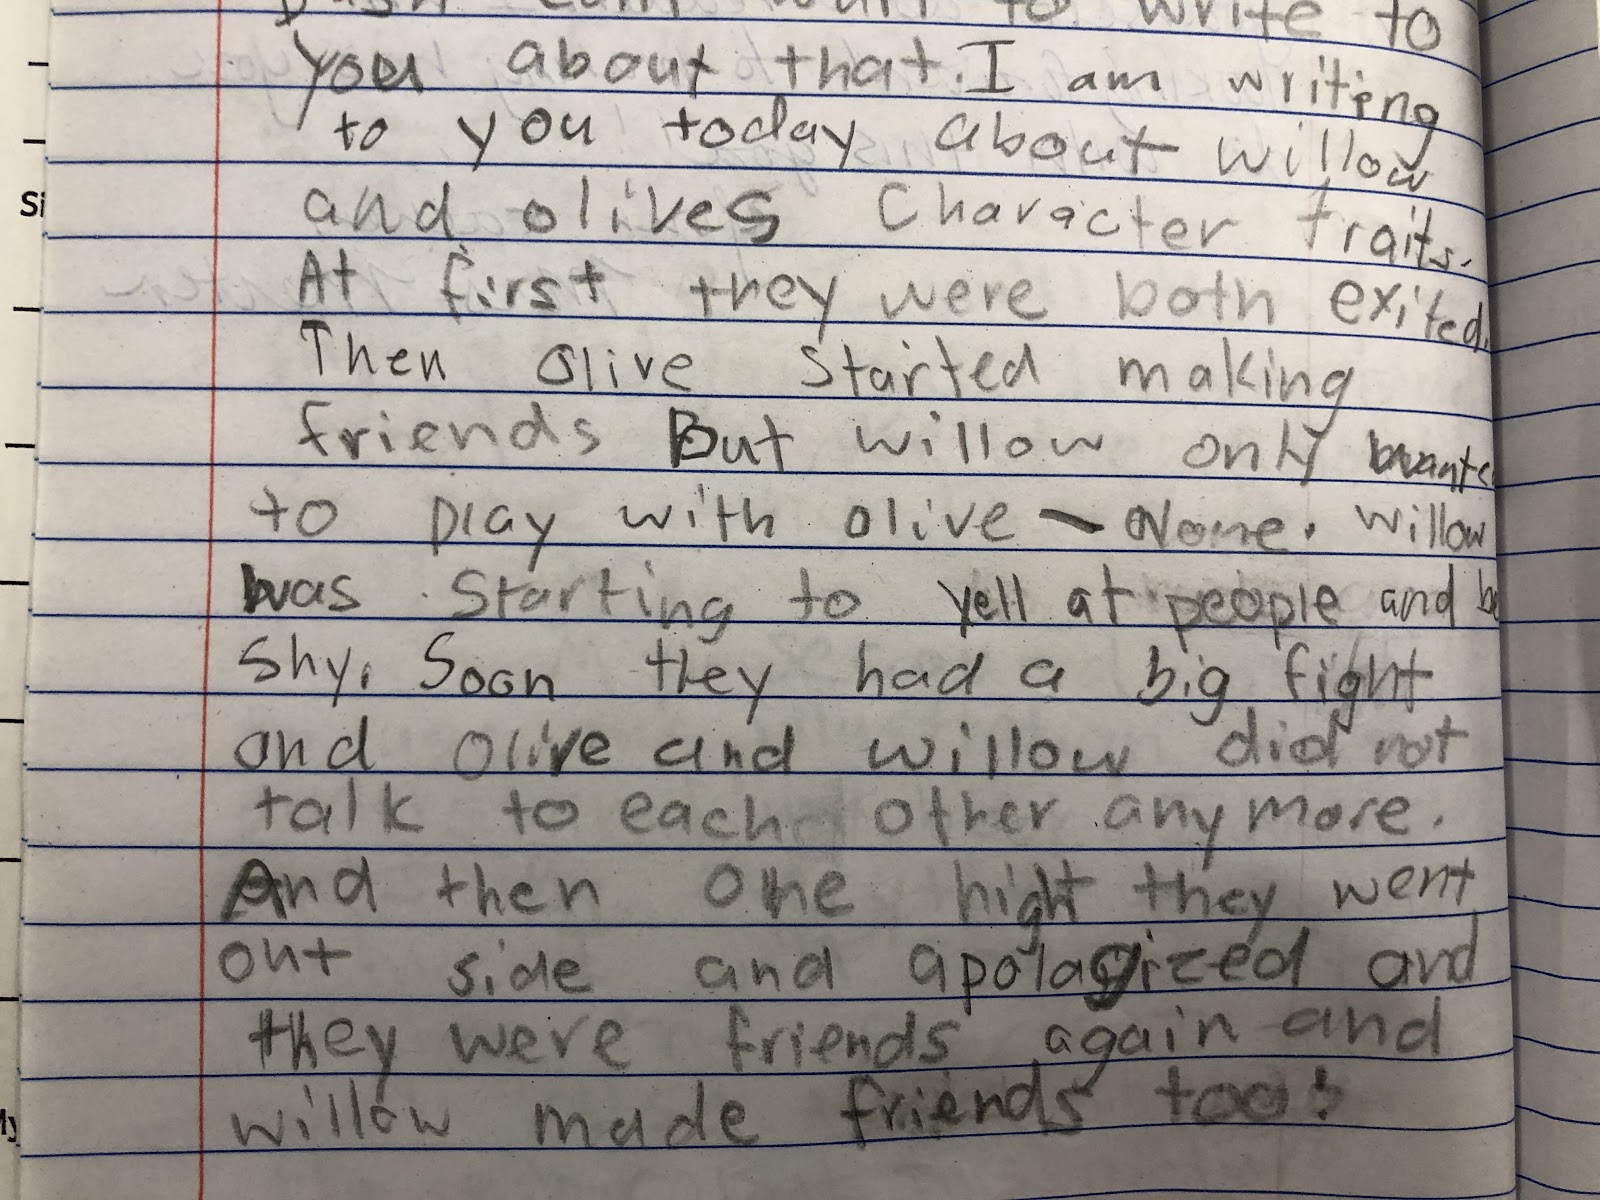 can't wait to write to
you about that. I am writing
to you today about willow
and olives Character traits.
At first they were both exited.
Then Olive started making
friends But willow only wante
to play with olive - None. willow
was starting to yell at people and be
shy. Soon they had a big fight
and olive and willow did not
talk to each other any more.
And then one night they went
out side and apolagized and
they were friends again and
willow made friends too!
Si
My